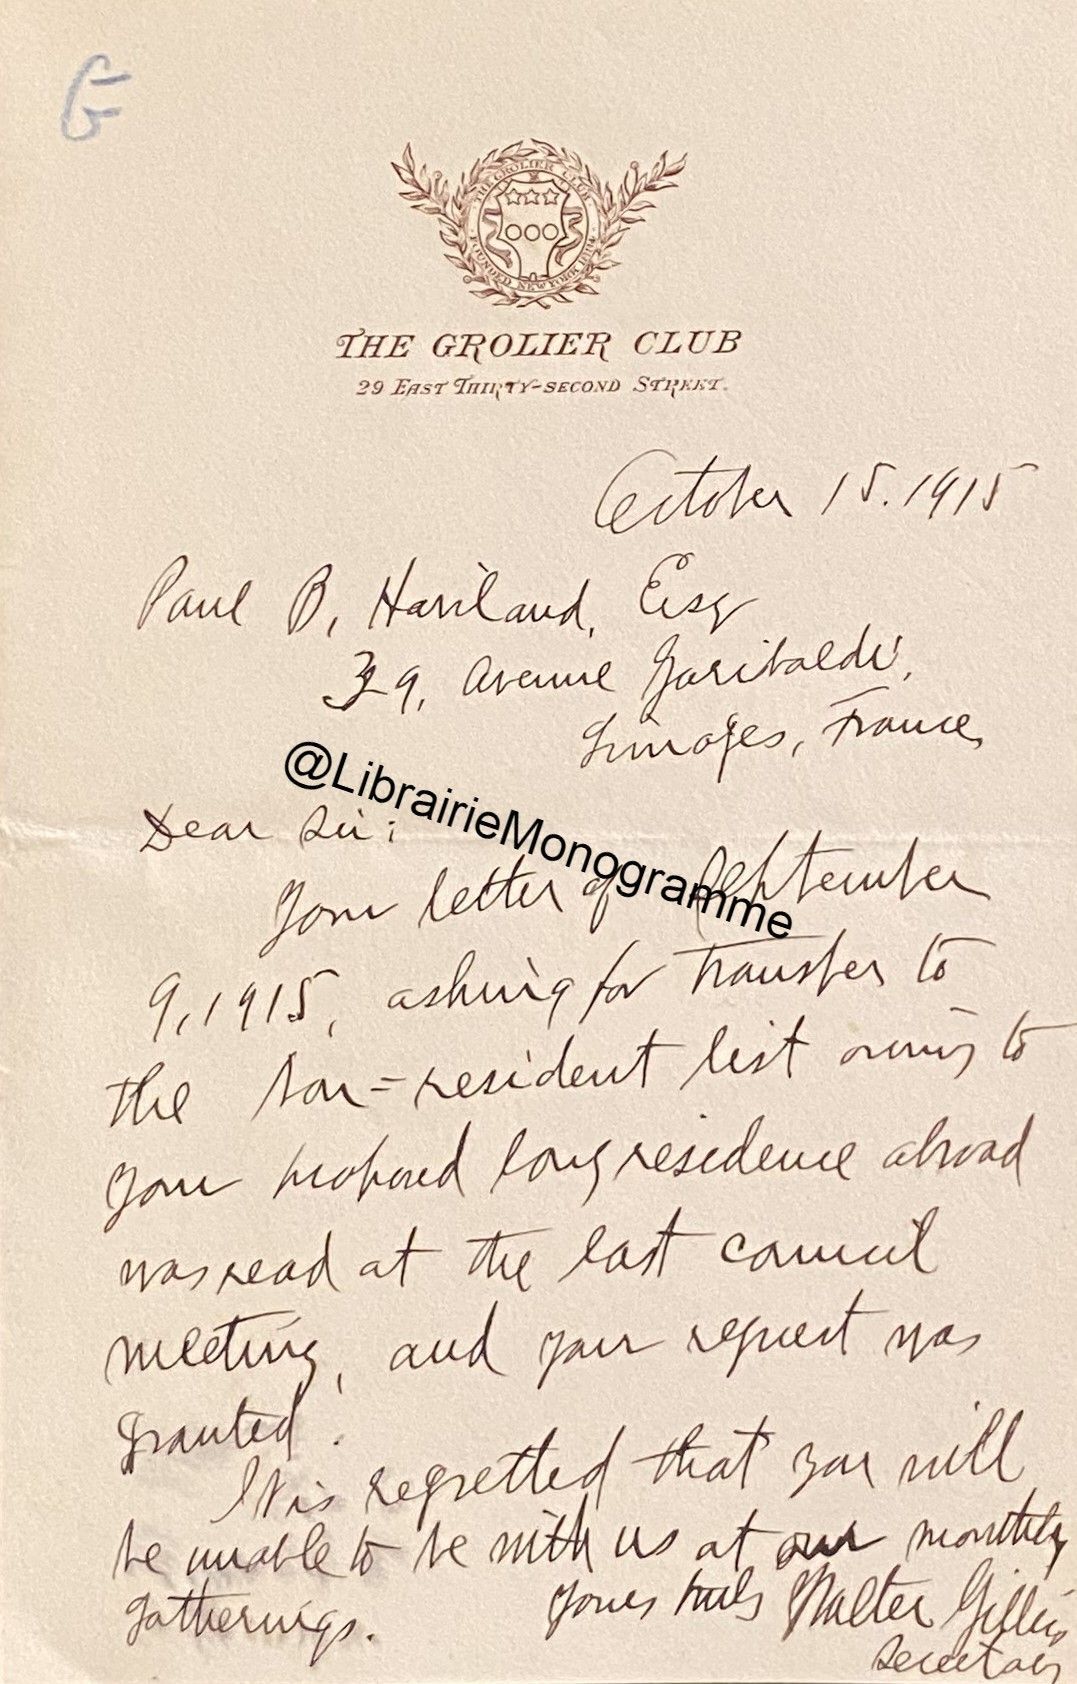 G
THE GROLIER CLUB
FOUNDED NEW YORK 1884
THE GROLIER CLUB
29 EAST THIRTY-SECOND STREET.
October 15. 1915
Paul B, Haviland, Esq
39, Avenue Garibaldi,
Limoges, France,
@LibrairieMonogramme
Dear Sir:
Your letter of September
9, 1915, asking for transfer to
the Non=resident list owing to
your proposed long residence abroad
was read at the last council
meeting, and your request was
granted.
It is regretted that you will
be unable to be with us at our monthly
gatherings.
Yours truly Walter Gilliss
Secretary